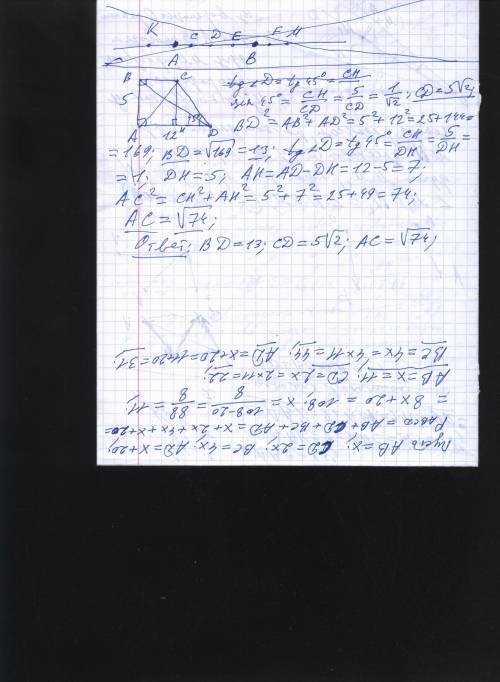 K C D E F M
A B
B C
tg∠D = tg45° = CH
sin 45° = CH/CD = 5/CD = 1/√2; CD = 5√2;
5
BD² = AB² + AD² = 5² + 12² = 25 + 144 =
45°
A 12 H D
= 169; BD = √169 = 13; tg∠D = tg 45° = CH/DH = 5/DH =
= 1; DH = 5; AH = AD - DH = 12 - 5 = 7;
AC² = CH² + AH² = 5² + 7² = 25 + 49 = 74;
AC = √74;
Ответ: BD = 13; CD = 5√2; AC = √74;
Пусть AB = x; CD = 2x; BC = 4x; AD = x + 20;
P = AB + CD + BC + AD = x + 2x + 4x + x + 20 =
= 8x + 20 = 108; x = 108-20/8 = 88/8 = 11;
AB = x = 11; CD = 2x = 2×11 = 22;
BC = 4x = 4×11 = 44; AD = x + 20 = 11 + 20 = 31;